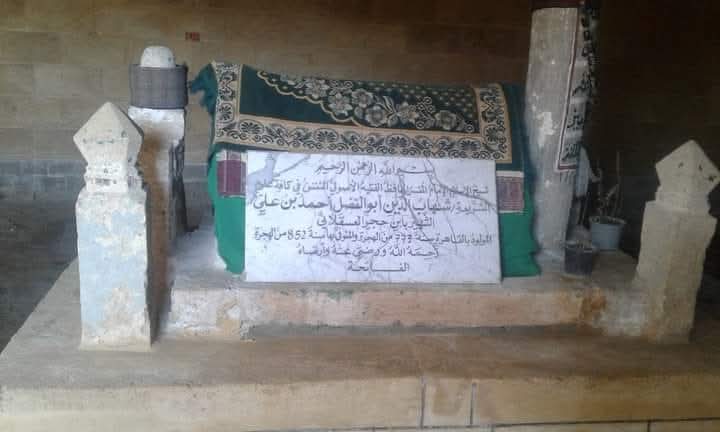 بسم الله الرحمن الرحيم
شيخ الإسلام الإمام الحافظ الفقيه الأصولى المتفنن فى كافة علوم
الشريعة / شهاب الدين أبو الفضل أحمد بن على
الشهير بابن حجر العسقلانى
المولود بالقاهرة سنة 773 من الهجرة والمتوفى بها سنة 852 من الهجرة
رحمه الله ورضى عنه وأرضاه
الفاتحة